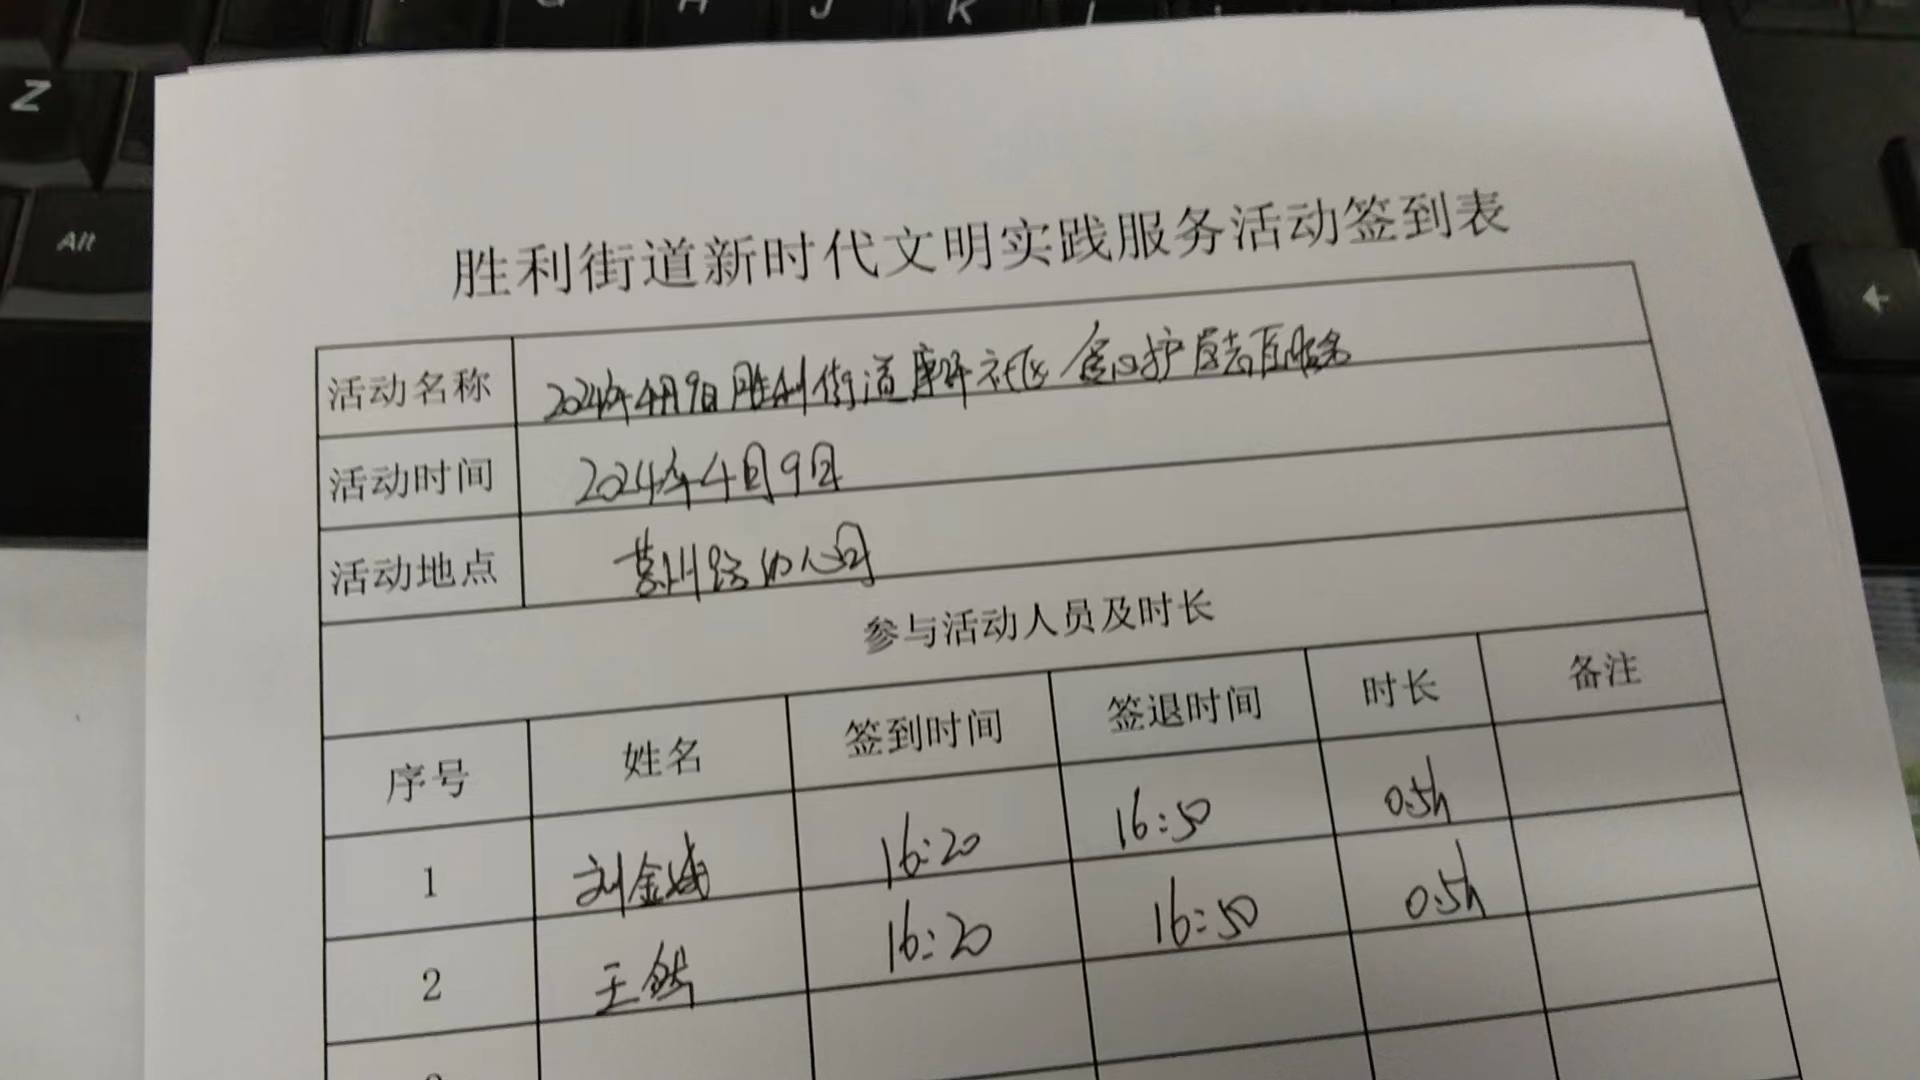 胜利街道新时代文明实践服务活动签到表
活动名称 2024年4月9日胜利街道 社区 护 服务
活动时间 2024年4月9日
活动地点 路幼儿园
参与活动人员及时长
序号 姓名 签到时间 签退时间 时长 备注
1 刘金 16:20 16:50 0.5h
2 王 16:20 16:50 0.5h
Z
Alt
H
J
K